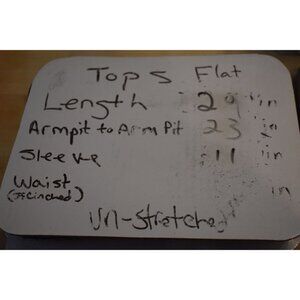 Tops Flat
Length 29 in
Armpit to Arm Pit 23 in
Sleeve 11 in
Waist in
(if Cinched)
Un-Stretched